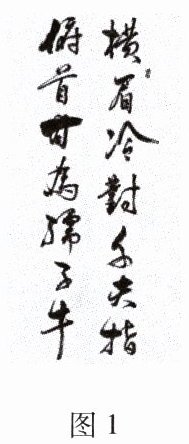 橫眉冷對千夫指
俯首甘為孺子牛
图1